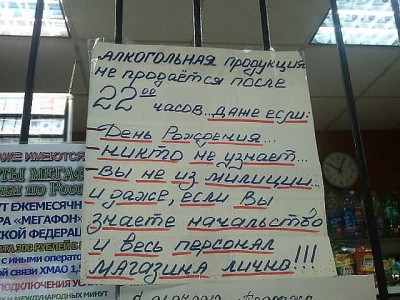 АЛКОГОЛЬНАЯ продукция
не продаётся после
22⁰⁰
часов... даже если:
- День Рождения...
- никто не узнает...
- вы не из милиции...
и даже, если Вы
знаете начальство
и весь персонал
магазина лично!!!
ЖЕ ИМЕЮТСЯ
ТЫ МЕГАФ
ки по Росс
УТ ЕЖЕМЕСЯЧН
РА «МЕГАФОН»
СКОЙ ФЕДЕРАЦИИ
с иными оператор
й связи ХМАО 1,5
ПОДКЛЮЧЕНИЯ УСЛ
И МЕЖДУНАРОДНЫХ МИНУТ